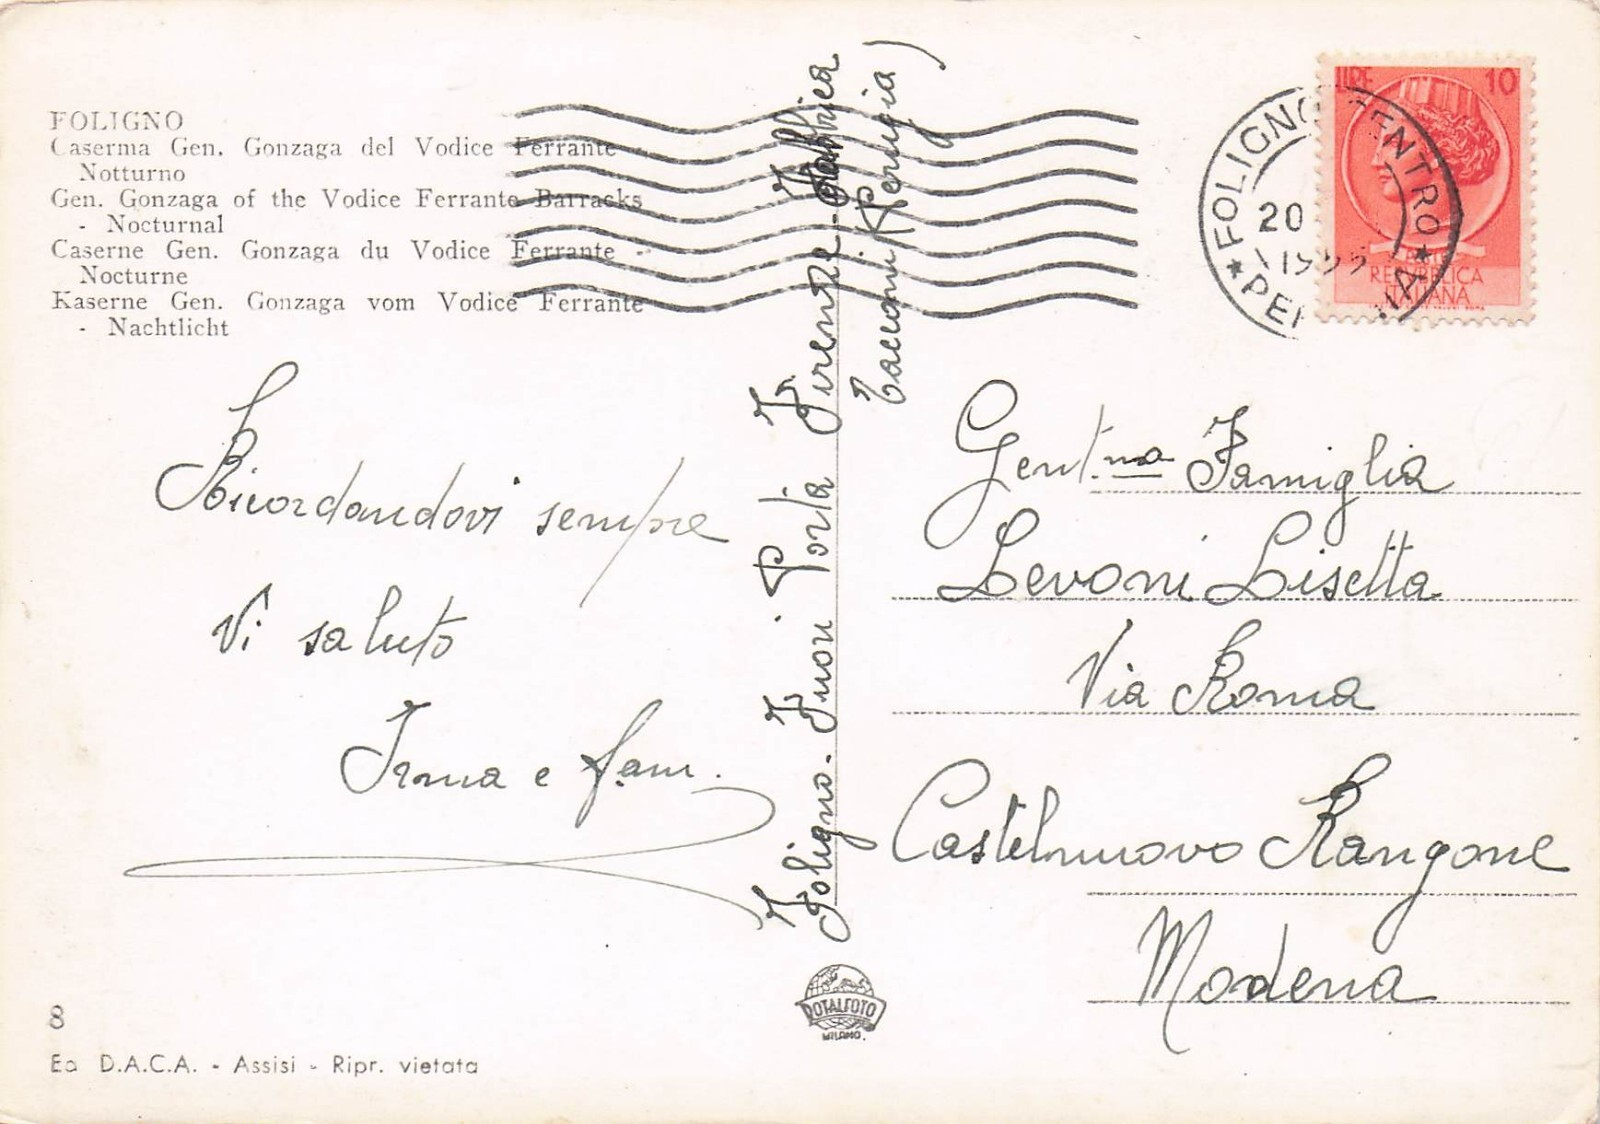 FOLIGNO
Caserma Gen. Gonzaga del Vodice Ferrante -
Notturno
Gen. Gonzaga of the Vodice Ferrante Barracks
- Nocturnal
Caserne Gen. Gonzaga du Vodice Ferrante -
Nocturne
Kaserne Gen. Gonzaga vom Vodice Ferrante
- Nachtlicht
Ricordandovi sempre
Vi saluto
Irma e fam.
Foligno - Fuori Porta Firenze - Fabbrica
Tacconi (Perugia)
LIRE 10
REPUBBLICA
ITALIANA
FOLIGNO CENTRO
20
Gent.ma Famiglia
Levoni Lisetta
Via Roma
Castelnuovo Rangone
Modena
ROTALFOTO
MILANO.
8
Ed D.A.C.A. - Assisi - Ripr. vietata